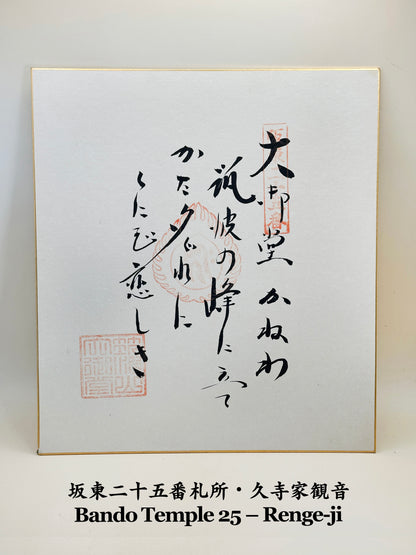 坂東二十五番
大御堂かねわ
筑波の峰に立て
かた夕ぐれに
くにぞ恋しき
坂東二十五番札所・久寺家観音
Bando Temple 25 – Renge-ji